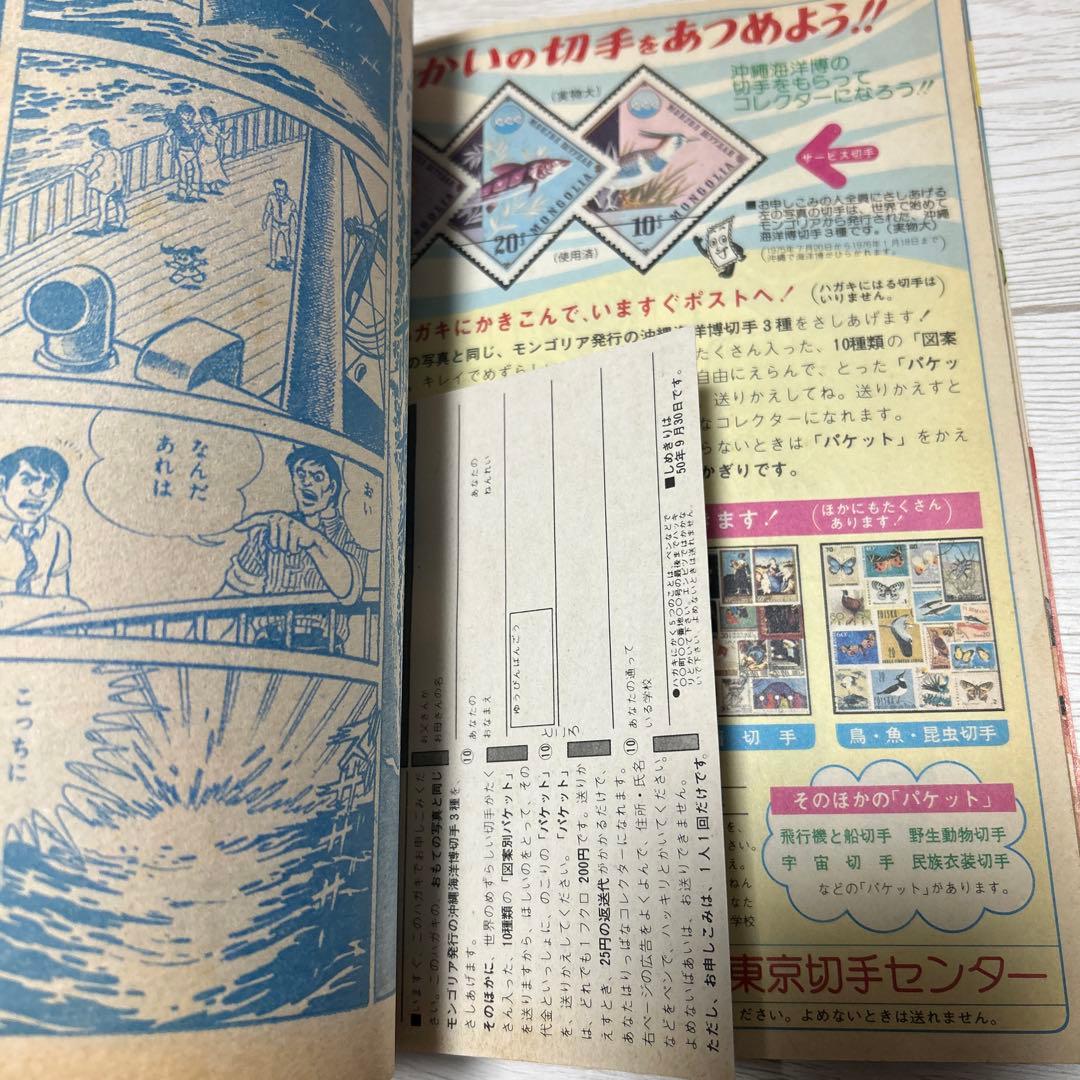 かいの切手をあつめよう!!
沖縄海洋博の
切手をもらって
コレクターになろう!!
(実物大)
サービス切手
MONGOLIA
20
MONGOLIA
10
(使用済)
■お申しこみの人全員にさしあげる
左の写真の切手は、世界で始めて
モンゴリアから発行された、沖縄
海洋博切手3種です。(実物大)
(1975年7月20日から1976年1月18日まで
沖縄で海洋博がひらかれます。)
ガキにかきこんで、いますぐポストへ!
(ハガキにはる切手は
いりません。)
の写真と同じ、モンゴリア発行の沖縄海洋博切手3種をさしあげます!
キレイでめずらし
たくさん入った、10種類の「図案
自由にえらんで、とった「パケッ
送りかえしてね。送りかえすと
なコレクターになれます。
らないときは「パケット」をかえ
かぎりです。
ます!
(ほかにもたくさん
あります!)
切手
鳥・魚・昆虫切手
そのほかの「パケット」
飛行機と船切手 野生動物切手
宇宙切手 民族衣装切手
などの「パケット」があります。
東京切手センター
ださい。よめないときは送れません。
■しめきりは
50年9月30日です。
●ハガキにかく5つのことは、ペンなどで
〇〇町〇〇番地〇〇号の最後までハッキ
リとかいて下さい。エンピツではかかな
いで下さい。よめないときは送れません。
あなたの通って
いる学校
ところ
ゆうびんばんごう
あなたの
おなまえ
あなたの
ねんれい
お父さんか
お母さんの名
■いますぐ、このハガキでお申しこみくだ
さい。このハガキの、おもての写真と同じ
モンゴリア発行の沖縄海洋博切手3種を、
さしあげます。
そのほかに、世界のめずらしい切手がたく
さん入った、10種類の「図案別パケット」
を送りますから、ほしいのをとって、その
代金といっしょに、のこりの「パケット」
を、送りかえしてください。「パケット」
は、どれでも1フクロ200円です。送りか
えすとき、25円の返送代がかかるだけで、
あなたはりっぱなコレクターになれます。
右ページの広告をよくよんで、住所・氏名
などをペンで、ハッキリとかいてください。
よめないばあいは、お送りできません。
ただし、お申しこみは、1人1回だけです。
おい
なんだ
あれは
こっちに